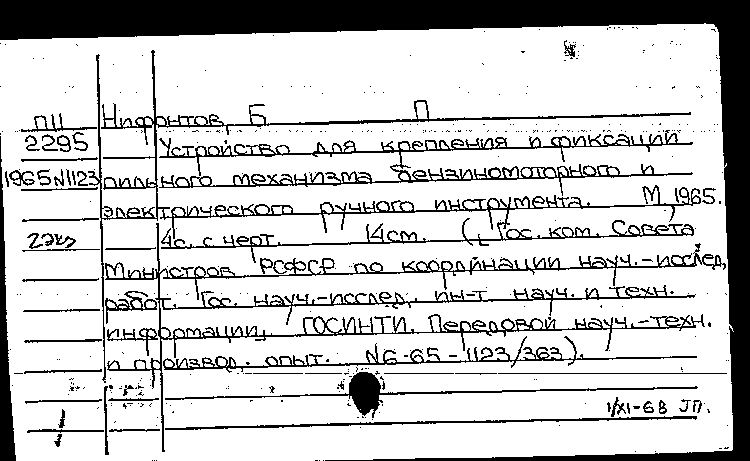 ПII Нифонтов, Б П
2295 Устройство для крепления и фиксации
1965N1123 пильного механизма бензиномоторного и
электрического ручного инструмента. М, 1965.
2экз 4с. с черт. 14см. ([Гос. ком. Совета
Министров РСФСР по координации науч.-исслед.
работ. Гос. науч.-исслед. ин-т науч. и техн.
информации, ГОСИНТИ. Передовой науч.-техн.
и производ. опыт. N6-65-1123/363).
1/XI-68 ЛП.